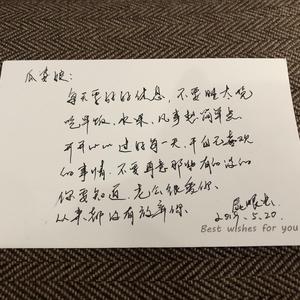 瓜婆娘:
每天要好好休息,不要睡太晚
吃早饭、水果、凡事想简单点
开开心心过好每一天,干自己喜欢
的事情,不要再想那些有的没的
你要知道,老公很爱你,
从来都没有放弃你。
2019.5.20.
Best wishes for you